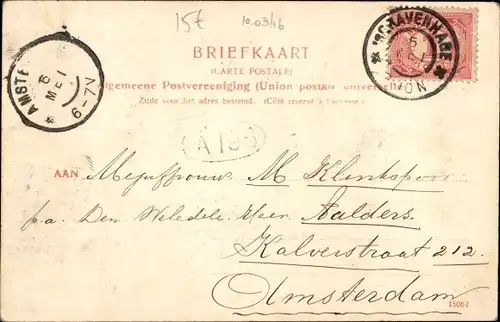 15€
10.03/46
BRIEFKAART
(CARTE POSTALE)
Algemeene Postvereeniging (Union postale universelle)
Zijde voor het adres bestemd. (Côté réservé à l'adresse)
'S GRAVENHAGE
5
MEI
VON
AMSTE
6
MEI
6-7V
A195
AAN Mejuffrouw M Klinkspoor
p.a. Den Weledele Heer Aalders.
Kalverstraat 212.
Amsterdam
15062